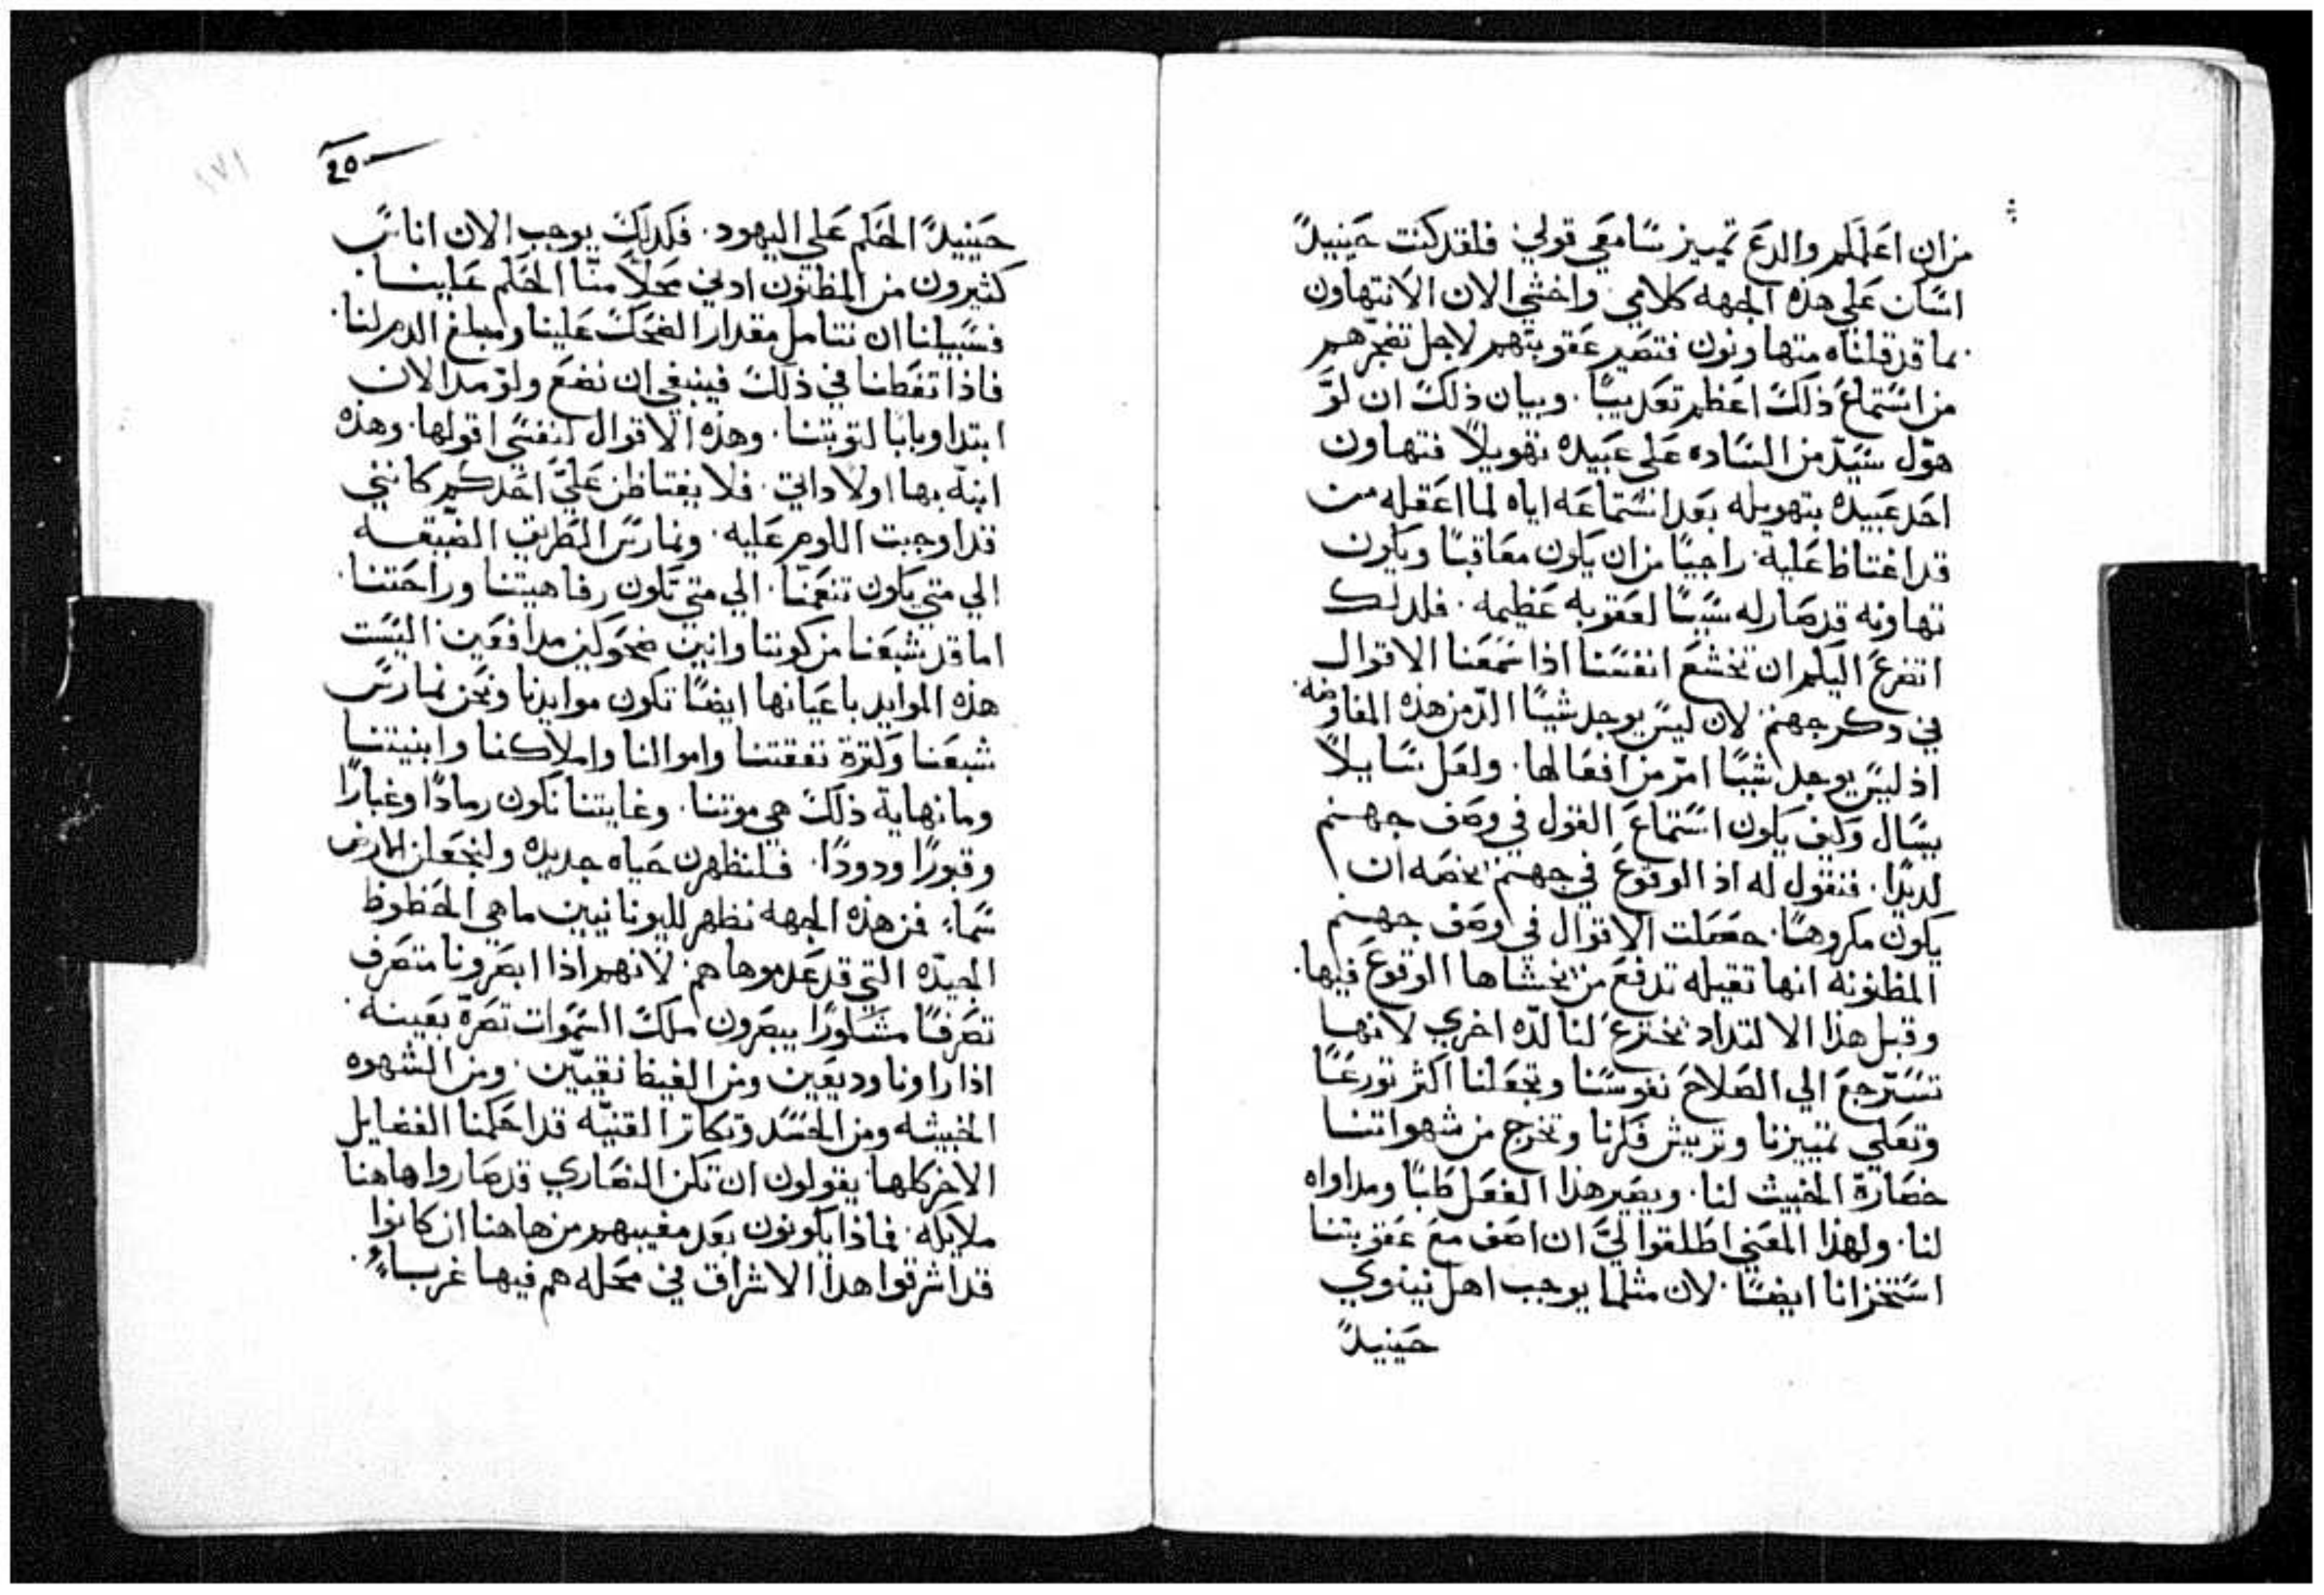 من ان اعلمكم والدع تمييز سامعي قولي. فلقد كنت حينيدً
اسان علي هذه الجهه كلامي. واخشي الان الا نتهاون
بما قد قلناه متهاونون فتصير عقوبتهم لاجل تضجرهم
من استماع ذلك اعظم تعديبًا. وبيان ذلك ان لوَّ
هوّل سيّد من الساده علي عبيده تهويلاً فتهاون
احد عبيده بتهويله بعد استماعه اياه لما اغفله من
قد اغتاظ عليه. راجيًا من ان يكون معاقبًا ويكون
تهاونه قد صار له سببًا لعقوبه عظيمه. فلدلك
اتضرع اليكم ان تخشع انفسنا اذا سمعنا الاقوال
في دكر جهنم. لان ليس يوجد شيًا الدّ من هذه المفاوضه.
اذ ليس يوجد شيًا امرّ من افعالها. ولعل سايلاً
يسال وكيف يكون استماع القول في وصف جهنم
لديدًا. فنقول له اذ الوقوع في جهنم يخصه ان
يكون مكروهًا. حصلت الاقوال في وصف جهنم
المظنونه انها تقيله تدفع من يخشاها الوقوع فيها.
وقبل هذا الالتداد تخترع لنا لدّه اخري لانها
تسترجع الي الصلاح نفوسنا وتجعلنا اكثر تورعًا
وتعلي تمييزنا وتريش فكرنا وتخرج من شهواتنا
حصارة الخبيث لنا. ويصير هذا الفعل طبًا ومداواه
لنا. ولهذا المعني اطلقوا ليَّ ان اصف مع عقوبتنا
استخزانا ايضًا. لان مثلما يوجب اهل نينوي
حينيدً
٤٥٠
حينيدً الحكم علي اليهود. فكدلك يوجب الان اناس
كثيرون من المظنون ادني محلاً منّا الحكم علينا.
فسبيلنا ان نتامل مقدار الضحك علينا ومبلغ الدم لنا.
فاذا تفطنا في ذلك فينبغي ان نضع ولو مد الان
ابتدا وبابا لتوبتنا. وهذه الاقوال لنفسي اقولها. وهذه
ابتد بها اولا داتي. فلا يغتاظن عليَّ احدكم كانني
قد اوجبت اللوم عليه. ونمارس الطريق الضيقه
الي متي يكون تنعمنا. الي متي تكون رفاهيتنا وراحتنا.
اما قد شبعنا من كوننا وانين ضحوكين مدافعين. اليست
هذه الموايد باعيانها ايضًا تكون موايدنا ونحن نمارس
شبعنا وكترة نفقتنا واموالنا واملاكنا وابنيتنا
وما نهاية ذلك هي موتنا. وغايتنا تكون رمادًا وغبارًا
وقبورًا ودودًا. فلنظهرن حياه جديده ولنجعلن الارض
سماءً. فمن هذه الجهه نظهر لليونانيين ما هي الحظوظ
الجيده التي قد عدموها هم. لانهم اذا ابصرونا متصرف
تصرفًا مشكورًا يبصرون ملك السموات تصرّه بعينه.
اذا راونا وديعين ومن الغيظ نقيّين. ومن الشهوه
الخبيثه ومن الحسد وتكاتر القنيّه قد احكمنا الفضايل
الاخر كلها. يقولون ان تكن النصاري قد صاروا هاهنا
ملايكه. فماذا يكونون بعد مغيبهم من هاهنا ان كانوا
قد اشرقوا هدا الاشراق في محله هم فيها غرباءُ.